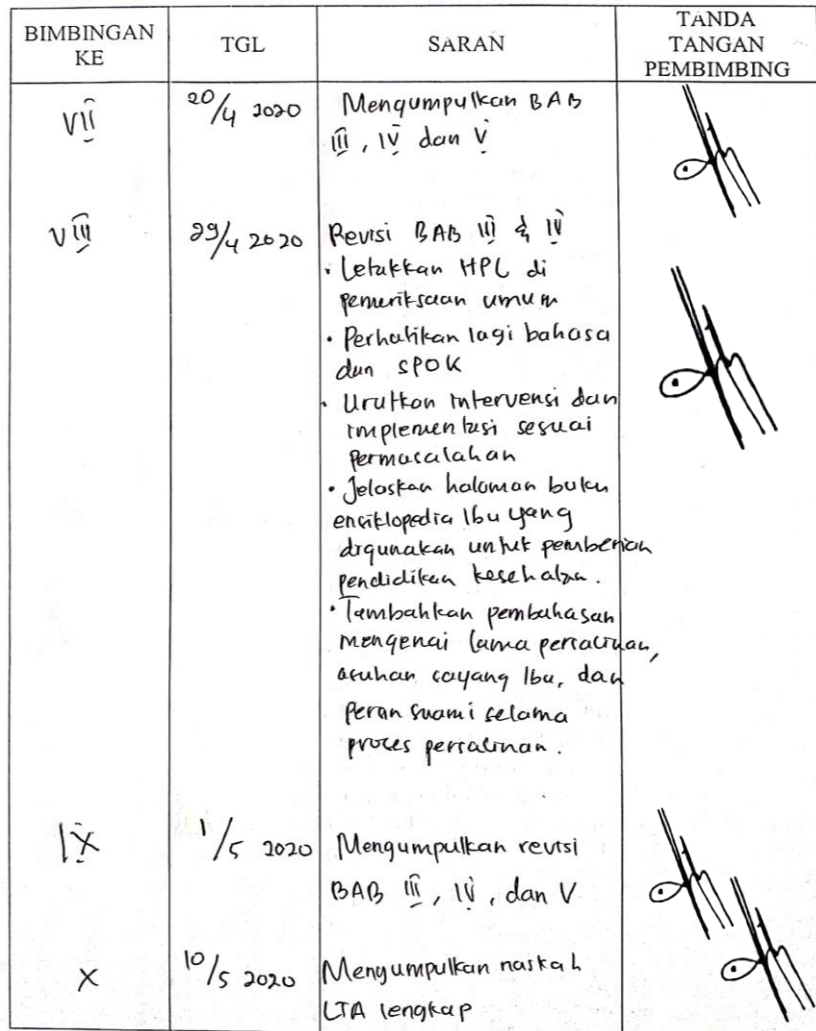 BIMBINGAN KE TGL SARAN TANDA TANGAN PEMBIMBING
VII 20/4 2020 Mengumpulkan BAB
III, IV dan V
VIII 29/4 2020 Revisi BAB III & IV
· Letakkan HPL di
pemeriksaan umum
· Perhatikan lagi bahasa
dan SPOK
· Urutkan intervensi dan
implementasi sesuai
permasalahan
· Jelaskan halaman buku
ensiklopedia Ibu yang
digunakan untuk pemberian
pendidikan kesehatan.
· Tambahkan pembahasan
mengenai lama persalinan,
asuhan sayang Ibu, dan
peran suami selama
proses persalinan.
IX 1/5 2020 Mengumpulkan revisi
BAB III, IV, dan V
X 10/5 2020 Mengumpulkan naskah
LTA lengkap